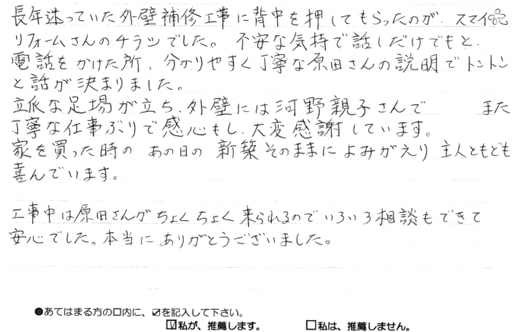 長年迷っていた外壁補修工事に背中を押してもらったのが、スマイル
リフォームさんのチラシでした。不安な気持で話しだけでもと、
電話をかけた所、分かりやすく丁寧な原田さんの説明でトントン
と話が決まりました。
立派な足場が立ち、外壁には河野親子さんで また
丁寧な仕事ぶりで感心もし、大変感謝しています。
家を買った時の あの日の 新築そのままによみがえり 主人ともども
喜んでいます。
工事中は原田さんがちょくちょく来られるのでいろいろ相談もできて
安心でした。本当にありがとうございました。
●あてはまる方の□内に、☑を記入して下さい。
☑私が、推薦します。 □私は、推薦しません。